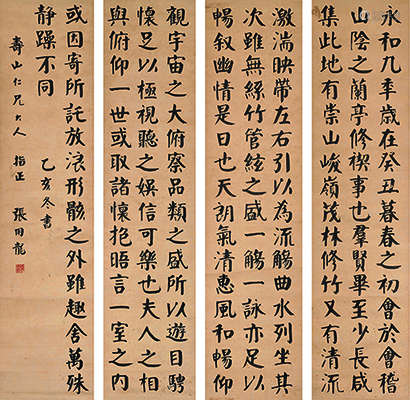 永和九年歲在癸丑暮春之初會於會稽
山陰之蘭亭修禊事也羣賢畢至少長咸
集此地有崇山峻嶺茂林修竹又有清流
激湍映帶左右引以為流觴曲水列坐其
次雖無絲竹管絃之盛一觴一詠亦足以
暢叙幽情是日也天朗氣清惠風和暢仰
觀宇宙之大俯察品類之盛所以遊目騁
懷足以極視聽之娛信可樂也夫人之相
與俯仰一世或取諸懷抱晤言一室之內
或因寄所託放浪形骸之外雖趣舍萬殊
靜躁不同
乙亥冬書
壽山仁兄大人 指正 張田龍